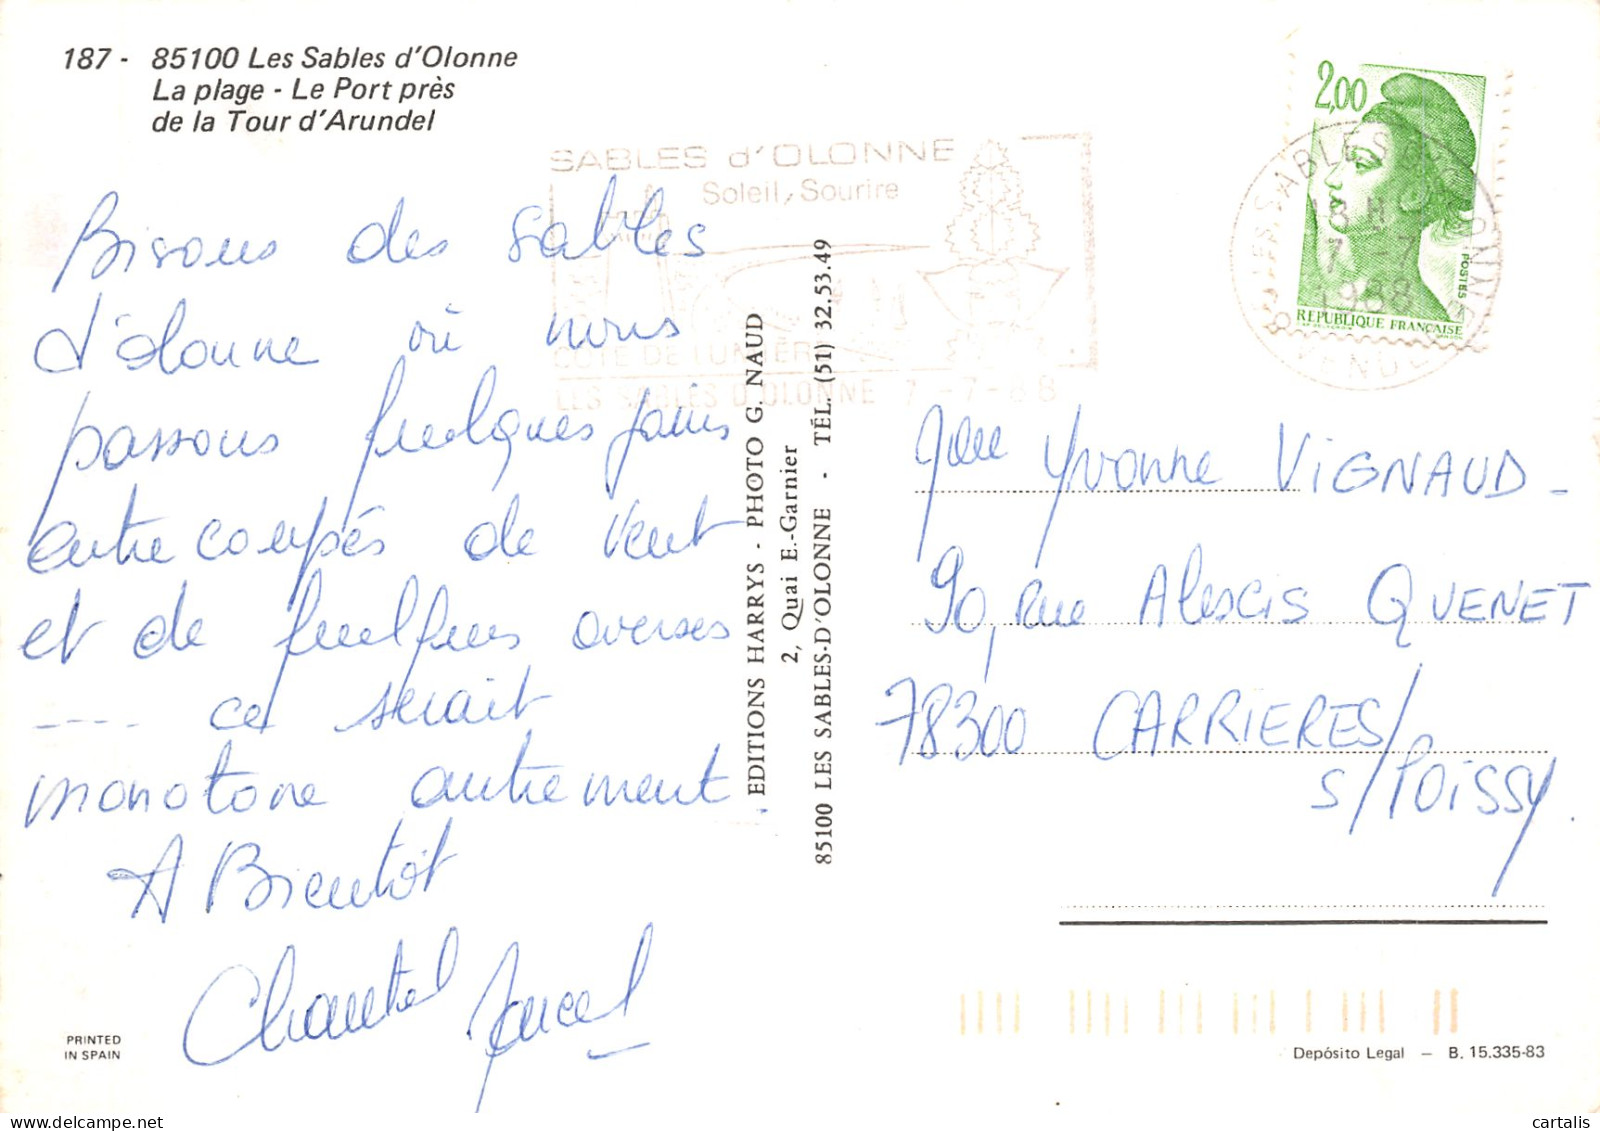 187 - 85100 Les Sables d'Olonne
La plage - Le Port près
de la Tour d'Arundel
SABLES d'OLONNE
Soleil, Sourire
CÔTE DE LUMIÈRE
LES SABLES D'OLONNE 7-7-88
2,00
POSTES
REPUBLIQUE FRANÇAISE
LES SABLES D'OLONNE
18 H
7 -7
1988
VENDEE
Bisous des Sables
d'olonne où nous
passons quelques jours
entrecoupés de vent
et de quelques averses
---- ce serait
monotone autrement.
A Bientôt
Chantal
EDITIONS HARRYS - PHOTO G. NAUD
2, Quai E.-Garnier
85100 LES SABLES-D'OLONNE - TÉL. (51) 32.53.49
Yvonne VIGNAUD -
90, rue Alexcis QUENET
78300 CARRIERES/
s/POISSY.
PRINTED
IN SPAIN
Depósito Legal - B. 15.335-83
cartalis